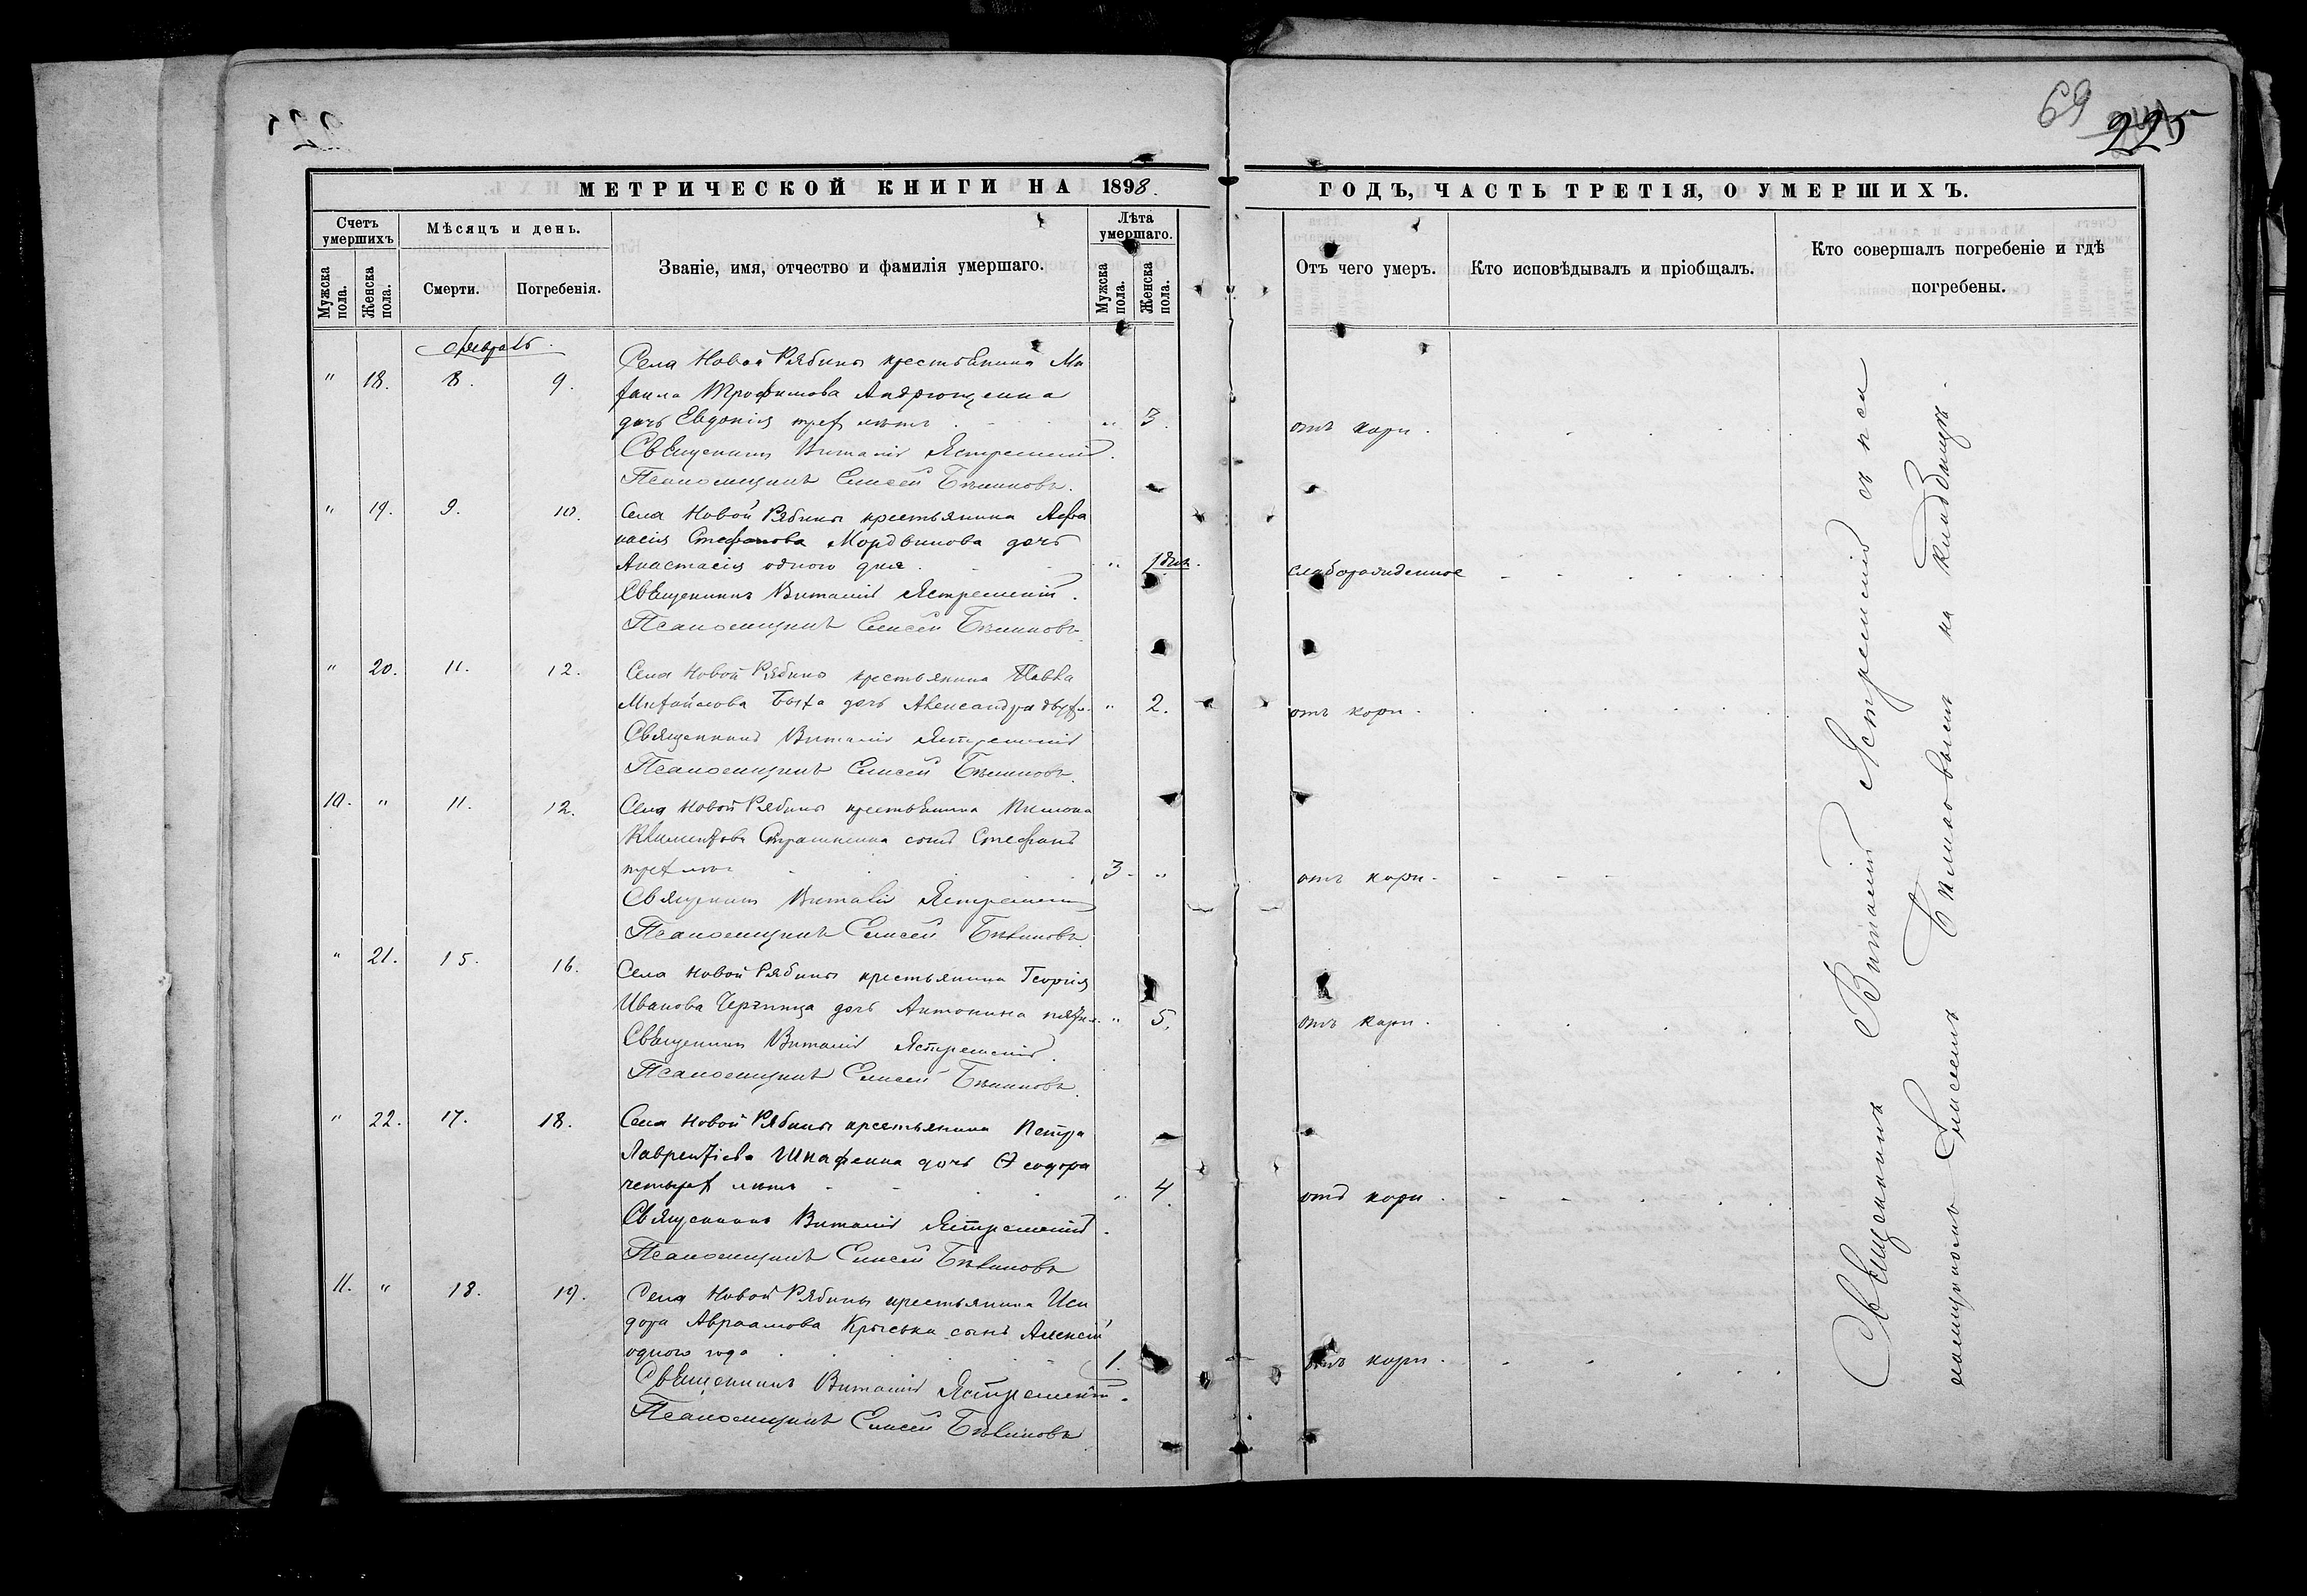 69
225
МЕТРИЧЕСКОЙ КНИГИ НА 1898.
ГОДЪ, ЧАСТЬ ТРЕТІЯ, О УМЕРШИХЪ.
Счетъ умершихъ
Мѣсяцъ и день.
Званіе, имя, отчество и фамилія умершаго.
Лѣта умершаго.
Мужска пола.
Женска пола.
Смерти.
Погребенія.
Мужска пола.
Женска пола.
Отъ чего умеръ.
Кто исповѣдывалъ и пріобщалъ.
Кто совершалъ погребеніе и гдѣ погребены.
Февраль.
" 18. 8. 9. Села Новой Рябины крестьянина Ми
хаила Трофимова Андрющенка
дочь Евдокія трех лѣтъ " 3. отъ кори.
Священникъ Виталій Ястремскій.
Псаломщикъ Елисей Бѣликовъ.
" 19. 9. 10. Села Новой Рябины крестьянина Афа
насія Стефанова Мордвинова дочь
Анастасія одного дня. " 1 дня. слаборожденное
Священникъ Виталій Ястремскій.
Псаломщикъ Елисей Бѣликовъ.
" 20. 11. 12. Села Новой Рябины крестьянина Павла
Михайлова дочь Александра двух л. " 2. отъ кори.
Священникъ Виталій Ястремскій
Псаломщикъ Елисей Бѣликовъ.
10. " 11. 12. Села Новой Рябины крестьянина
Климентова сынъ Стефанъ
трех лѣтъ 3. " отъ кори.
Священникъ Виталій Ястремскій
Псаломщикъ Елисей Бѣликовъ.
" 21. 15. 16. Села Новой Рябины крестьянина Георгія
Иванова дочь Антонина пяти л. " 5. отъ кори.
Священникъ Виталій Ястремскій.
Псаломщикъ Елисей Бѣликовъ.
" 22. 17. 18. Села Новой Рябины крестьянина Петра
Лаврентіева дочь Ѳеодора
четырех лѣтъ " 4. отъ кори.
Священникъ Виталій Ястремскій.
Псаломщикъ Елисей Бѣликовъ
11. " 18. 19. Села Новой Рябины крестьянина Иси
дора Авраамова Крыська сынъ Алексій
одного года 1. отъ кори.
Священникъ Виталій Ястремскій.
Псаломщикъ Елисей Бѣликовъ
Священникъ Виталій Ястремскій съ пса
ломщикомъ Елисеемъ Бѣликовымъ на кладбищѣ.